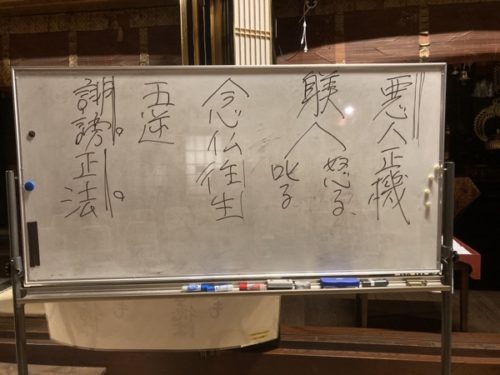 悪人正機
躾
怒る
叱る
念仏往生
五逆
誹謗正法